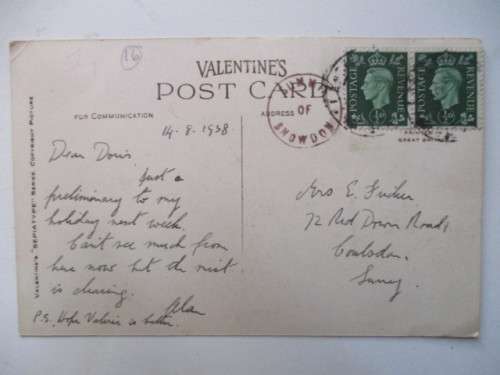 16
VALENTINE'S
POST CARD
FOR COMMUNICATION
ADDRESS
SUMMIT
OF
SNOWDON
POSTAGE
REVENUE
POSTAGE
REVENUE
GREAT BRITAIN
VALENTINE'S "SEPIATYPE" SERIES. COPYRIGHT PICTURE
14-8-1938
Dear Doris
Just a
preliminary to my
holiday next week.
Can't see much from
here now but the mist
is clearing.
Alan
P.S. Hope Valerie is better.
Mrs E.
72 Red Down Road,
Coulsdon.
Surrey.